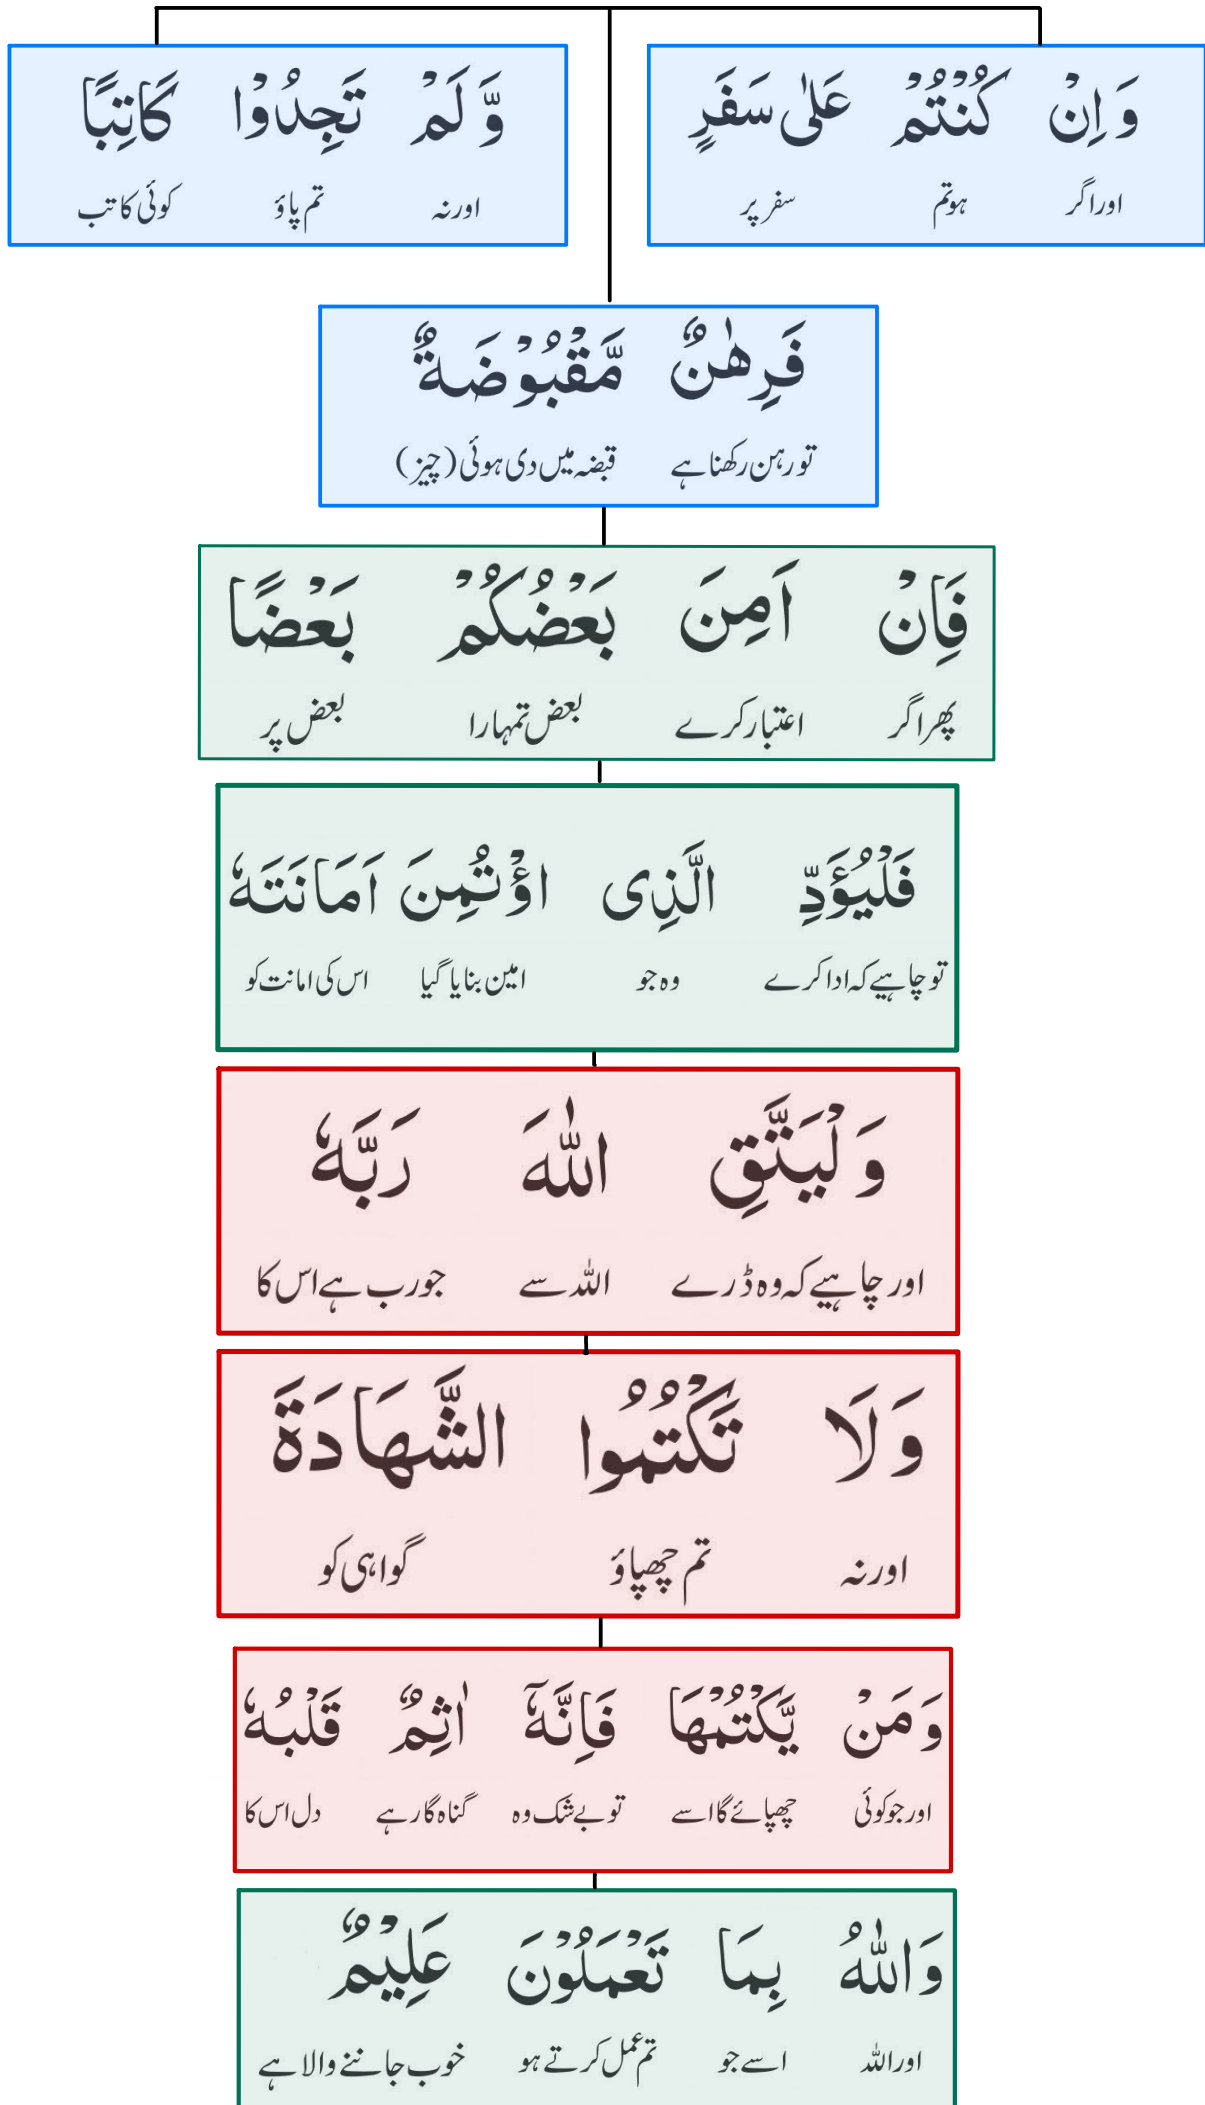 وَ اِنْ كُنْتُمْ عَلٰى سَفَرٍ
اور اگر ہو تم سفر پر
وَّ لَمْ تَجِدُوْا كَاتِبًا
اور نہ تم پاؤ کوئی کاتب
فَرِهٰنٌ مَّقْبُوْضَةٌ
تو رہن رکھنا ہے قبضہ میں دی ہوئی (چیز)
فَاِنْ اَمِنَ بَعْضُكُمْ بَعْضًا
پھر اگر اعتبار کرے بعض تمہارا بعض پر
فَلْيُؤَدِّ الَّذِى اؤْتُمِنَ اَمَانَتَهٗ
تو چاہیے کہ ادا کرے وہ جو امین بنایا گیا اس کی امانت کو
وَ لْيَتَّقِ اللّٰهَ رَبَّهٗ
اور چاہیے کہ وہ ڈرے اللہ سے جو رب ہے اس کا
وَ لَا تَكْتُمُوا الشَّهَادَةَ
اور نہ تم چھپاؤ گواہی کو
وَ مَنْ يَّكْتُمْهَا فَاِنَّهٗۤ اٰثِمٌ قَلْبُهٗ
اور جو کوئی چھپائے گا اسے تو بے شک وہ گناہ گار ہے دل اس کا
وَ اللّٰهُ بِمَا تَعْمَلُوْنَ عَلِيْمٌ
اور اللہ اسے جو تم عمل کرتے ہو خوب جاننے والا ہے